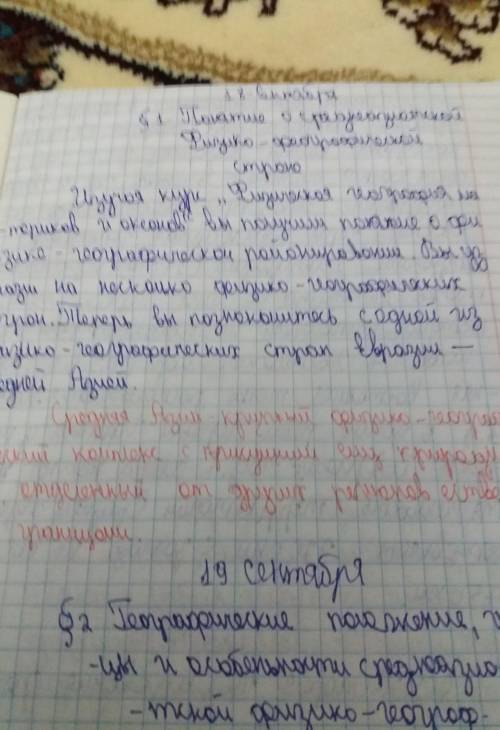 18 сентября
§1. Понятие о среднеазиатской
Физико-географической
страно
Изучая курс „Физическая география ма
-териков и океанов" вы получили понятие о фи
зико-географическом районировании. Вы уз
нали на несколко физико-географических
стран. Теперь вы познокомитесь с одной из
физико-географических стран Евразии —
редней Азией.
Средняя Азия крупный физико-геогра
еский комплекс с присущими ему природн
отделенный от других регионов
границами.
19 сентября
§2 Географические положение,
-цы и особенности среднеазиа
-тской физико-географ-